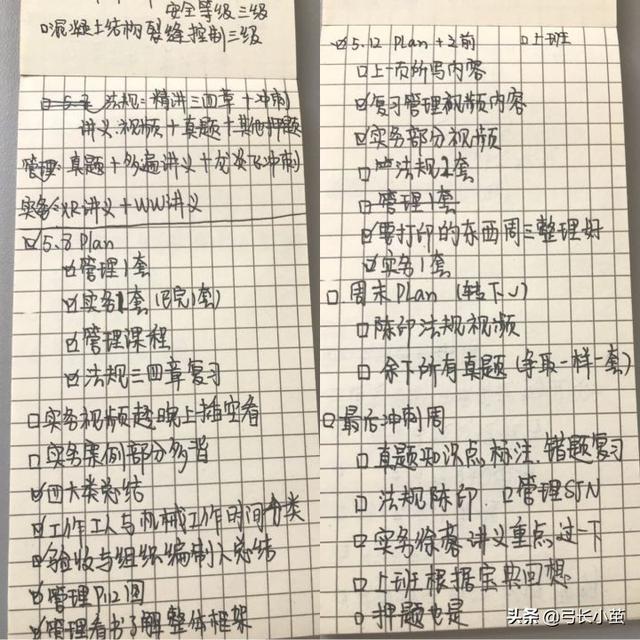 安全等级三级
□混凝土结构裂缝控制三级
法规:精讲三四章+冲刺
讲义.视频+真题+其他押题
管理:真题+多遍讲义+龙炎飞冲刺
实务:XR讲义+WW讲义
☑5.8 Plan
☑管理1套
☑实务1套(已完1套)
☑管理课程
☑法规三四章复习
□实务视频趁晚上插空看
□实务案例部分多背
☑四大类总结
☑工作工人与机械工作时间分类
☑验收与组织编制人总结
☑管理P112图
☑管理看书了解整体框架
☑5.12 Plan+之前 □上班
□上一页所写内容
☑复习管理视频内容
☑实务部分视频
□法规1套
□管理1套
☑要打印的东西周三整理好
☑实务1套
□周末Plan (转下↓)
□陈印法规视频
□余下所有真题(争取一样一套)
□最后冲刺周
□真题知识点标注.错题复习
□法规陈印 □管理SJN
□实务徐蓉讲义重点过一下
□上班根据宝典回想
□押题也是
头条 @弓长小茁